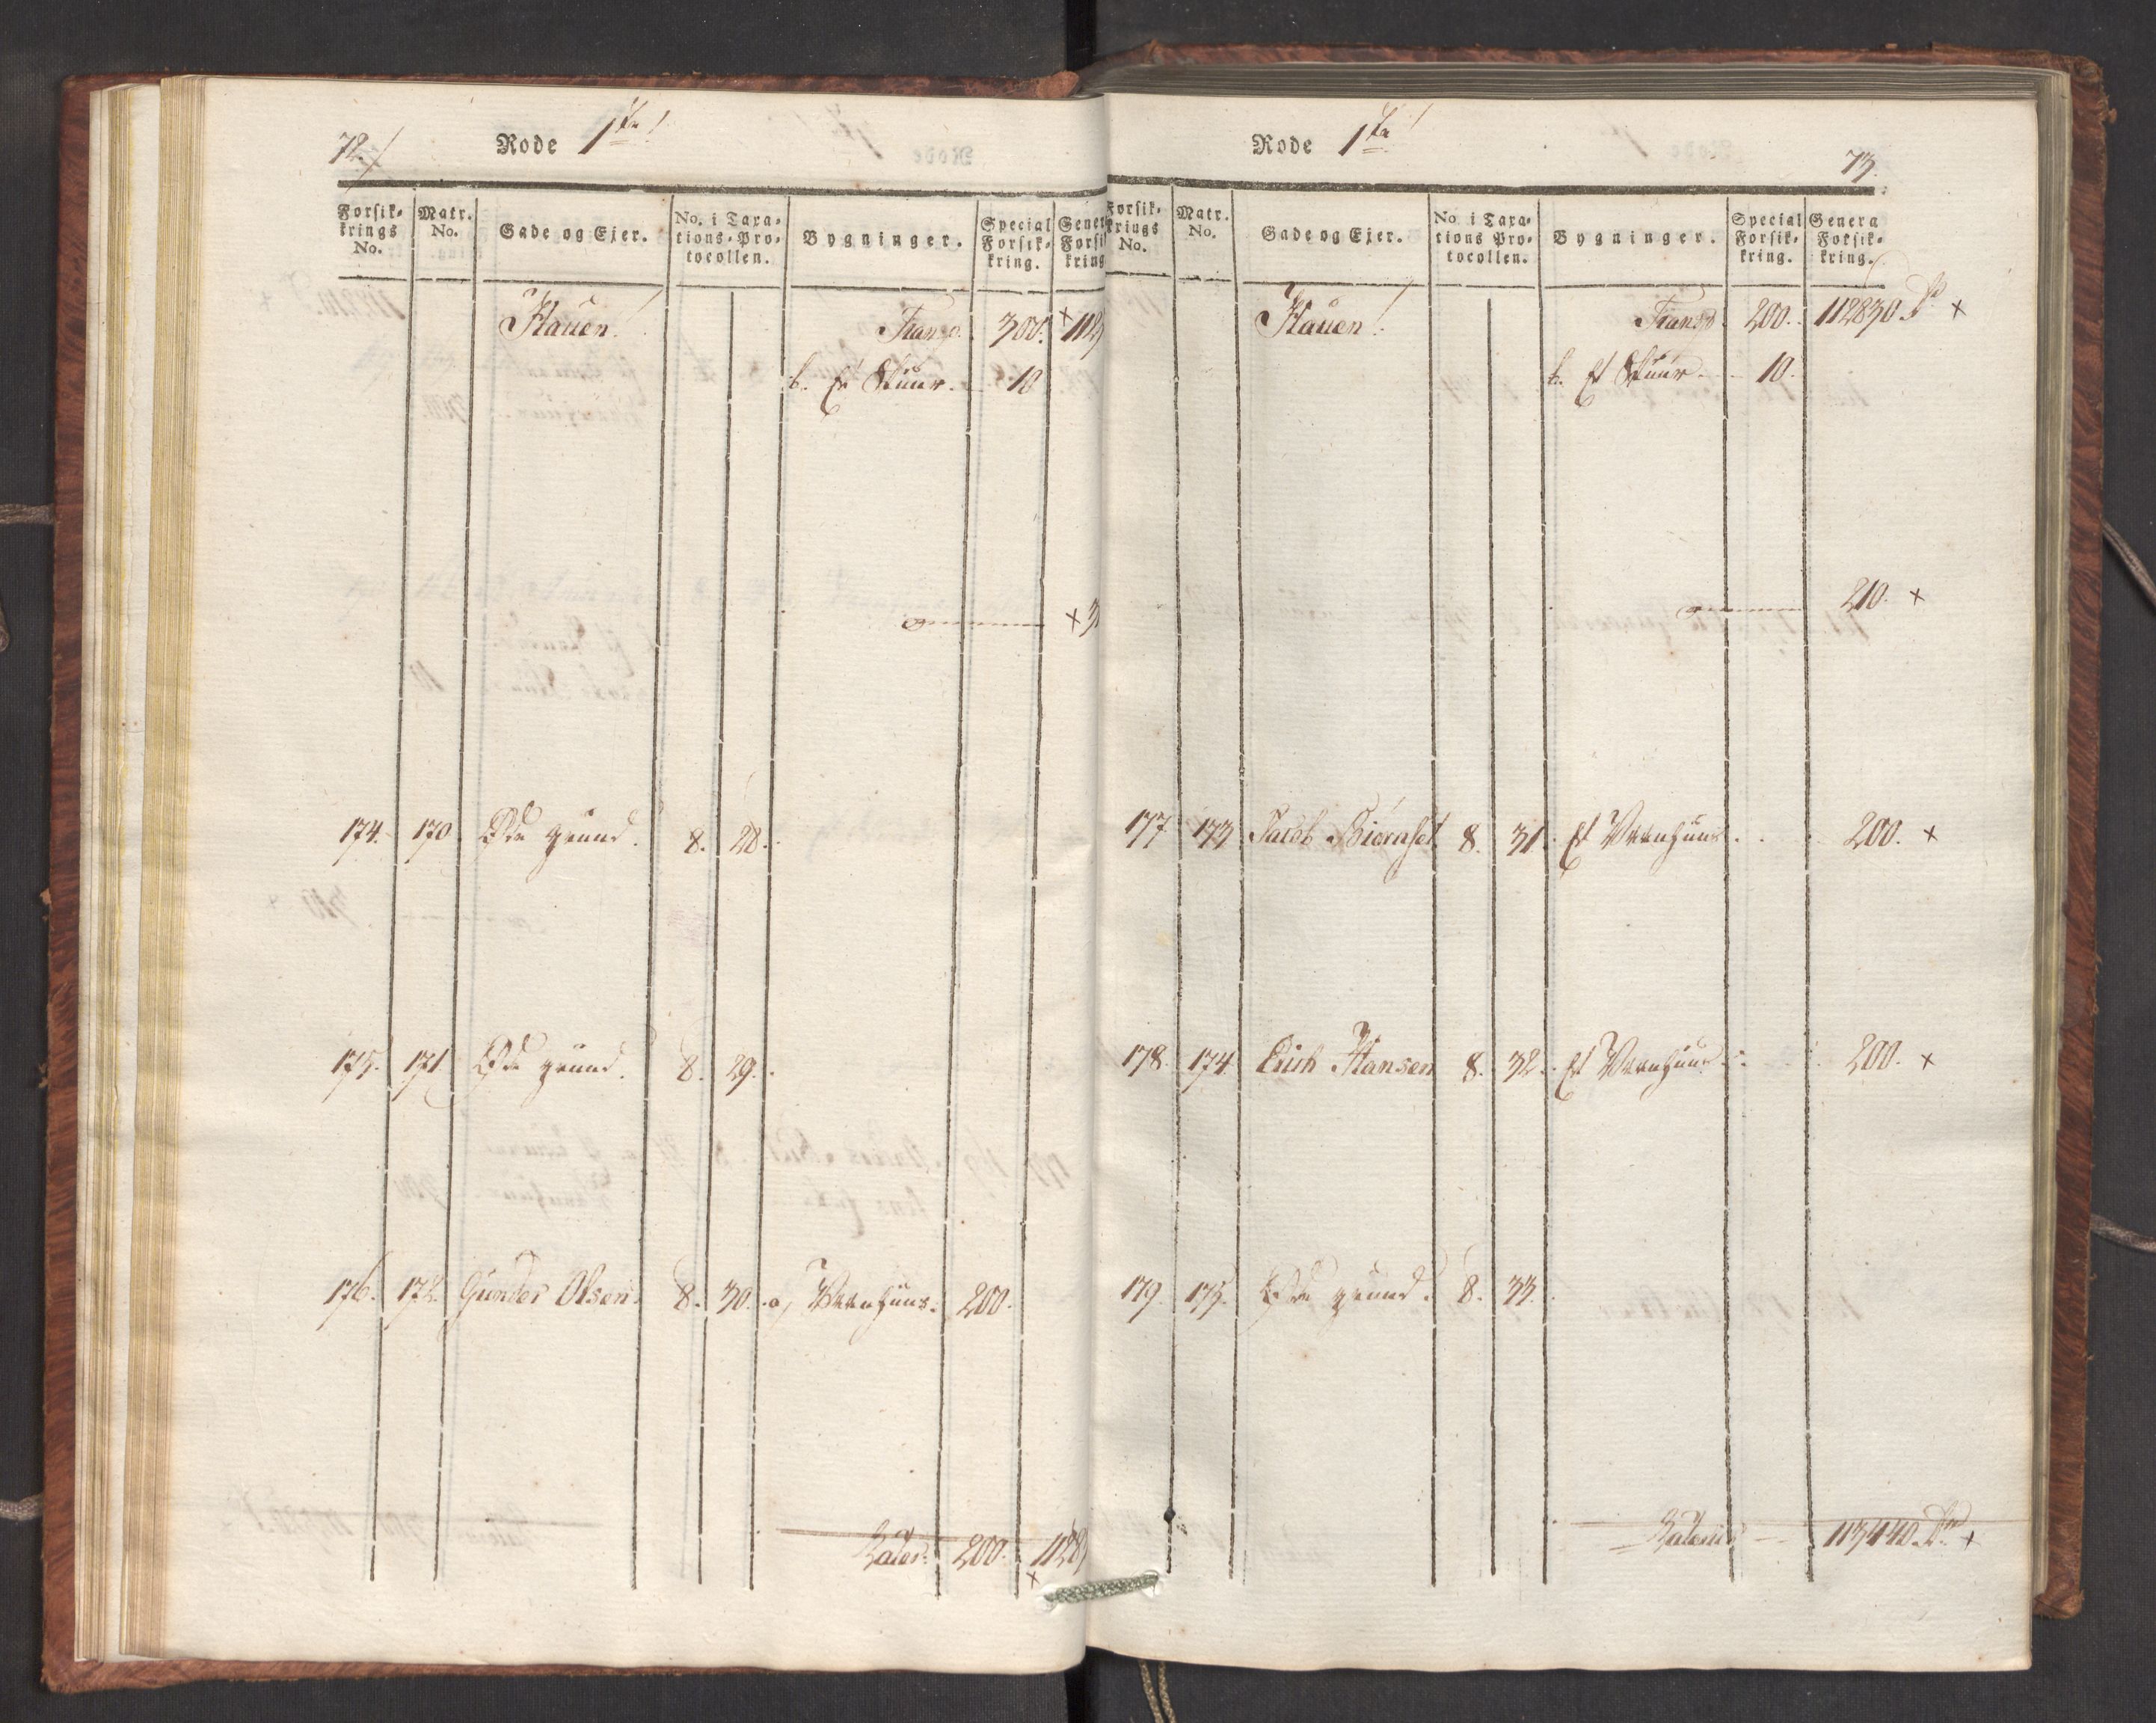 72.
Rode 1ste
Forsik-
krings
No.
Matr.
No.
Gade og Ejer.
No. i Taxa-
tions-Pro-
tocollen.
Bygninger.
Special
Forsik-
kring.
Gener
Forsi
kring
Hauen! Transp. 300. × 112
b. Et Skuur. 10
× 3
174. 170. Øde grund. 8. 28.
175. 171. Øde grund. 8. 29.
176. 172. Gunder Olsen. 8. 30. a, Vaanhuus. 200.
Lateris 200. 1128
×
Rode 1ste
73.
Forsik-
krings
No.
Matr.
No.
Gade og Ejer.
No i Taxa-
tions Pro-
tocollen.
Bygninger.
Special
Forsik-
kring.
Genera
Forsik-
kring.
Hauen! Transp. 200. 112830 Rd. ×
b. Et Skuur. 10.
210. ×
177 173 Jacob Biørnset 8. 31. Et Vaanhuus 200. ×
178. 174 Erich Hansen 8. 32. Et Vaanhuus 200. ×
179. 175. Øde grund. 8. 33.
Lateris 113440 Rd. ×